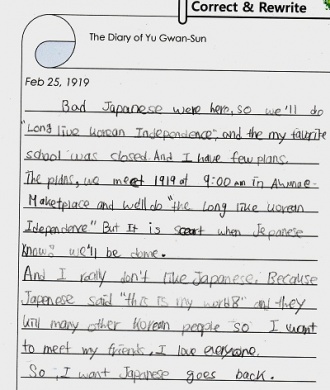 Correct & Rewrite
The Diary of Yu Gwan-Sun
Feb 25, 1919
Bad Japanese were here, so we'll do
"Long live Korean Independence", and the my favorite
school was closed. And I have few plans.
The plans, we meet 1919 at 9:00 am in Awunae-
Marketplace and we'll do "the Long like Korean
Idependence" But It is secret when Jepanese
know? we'll be done.
And I really don't like Japanese. Because
Japanese said "this is my world" and they
kill many other Korean people so I want
to meet my friends, I love everyone.
So, I want Japanese goes back.